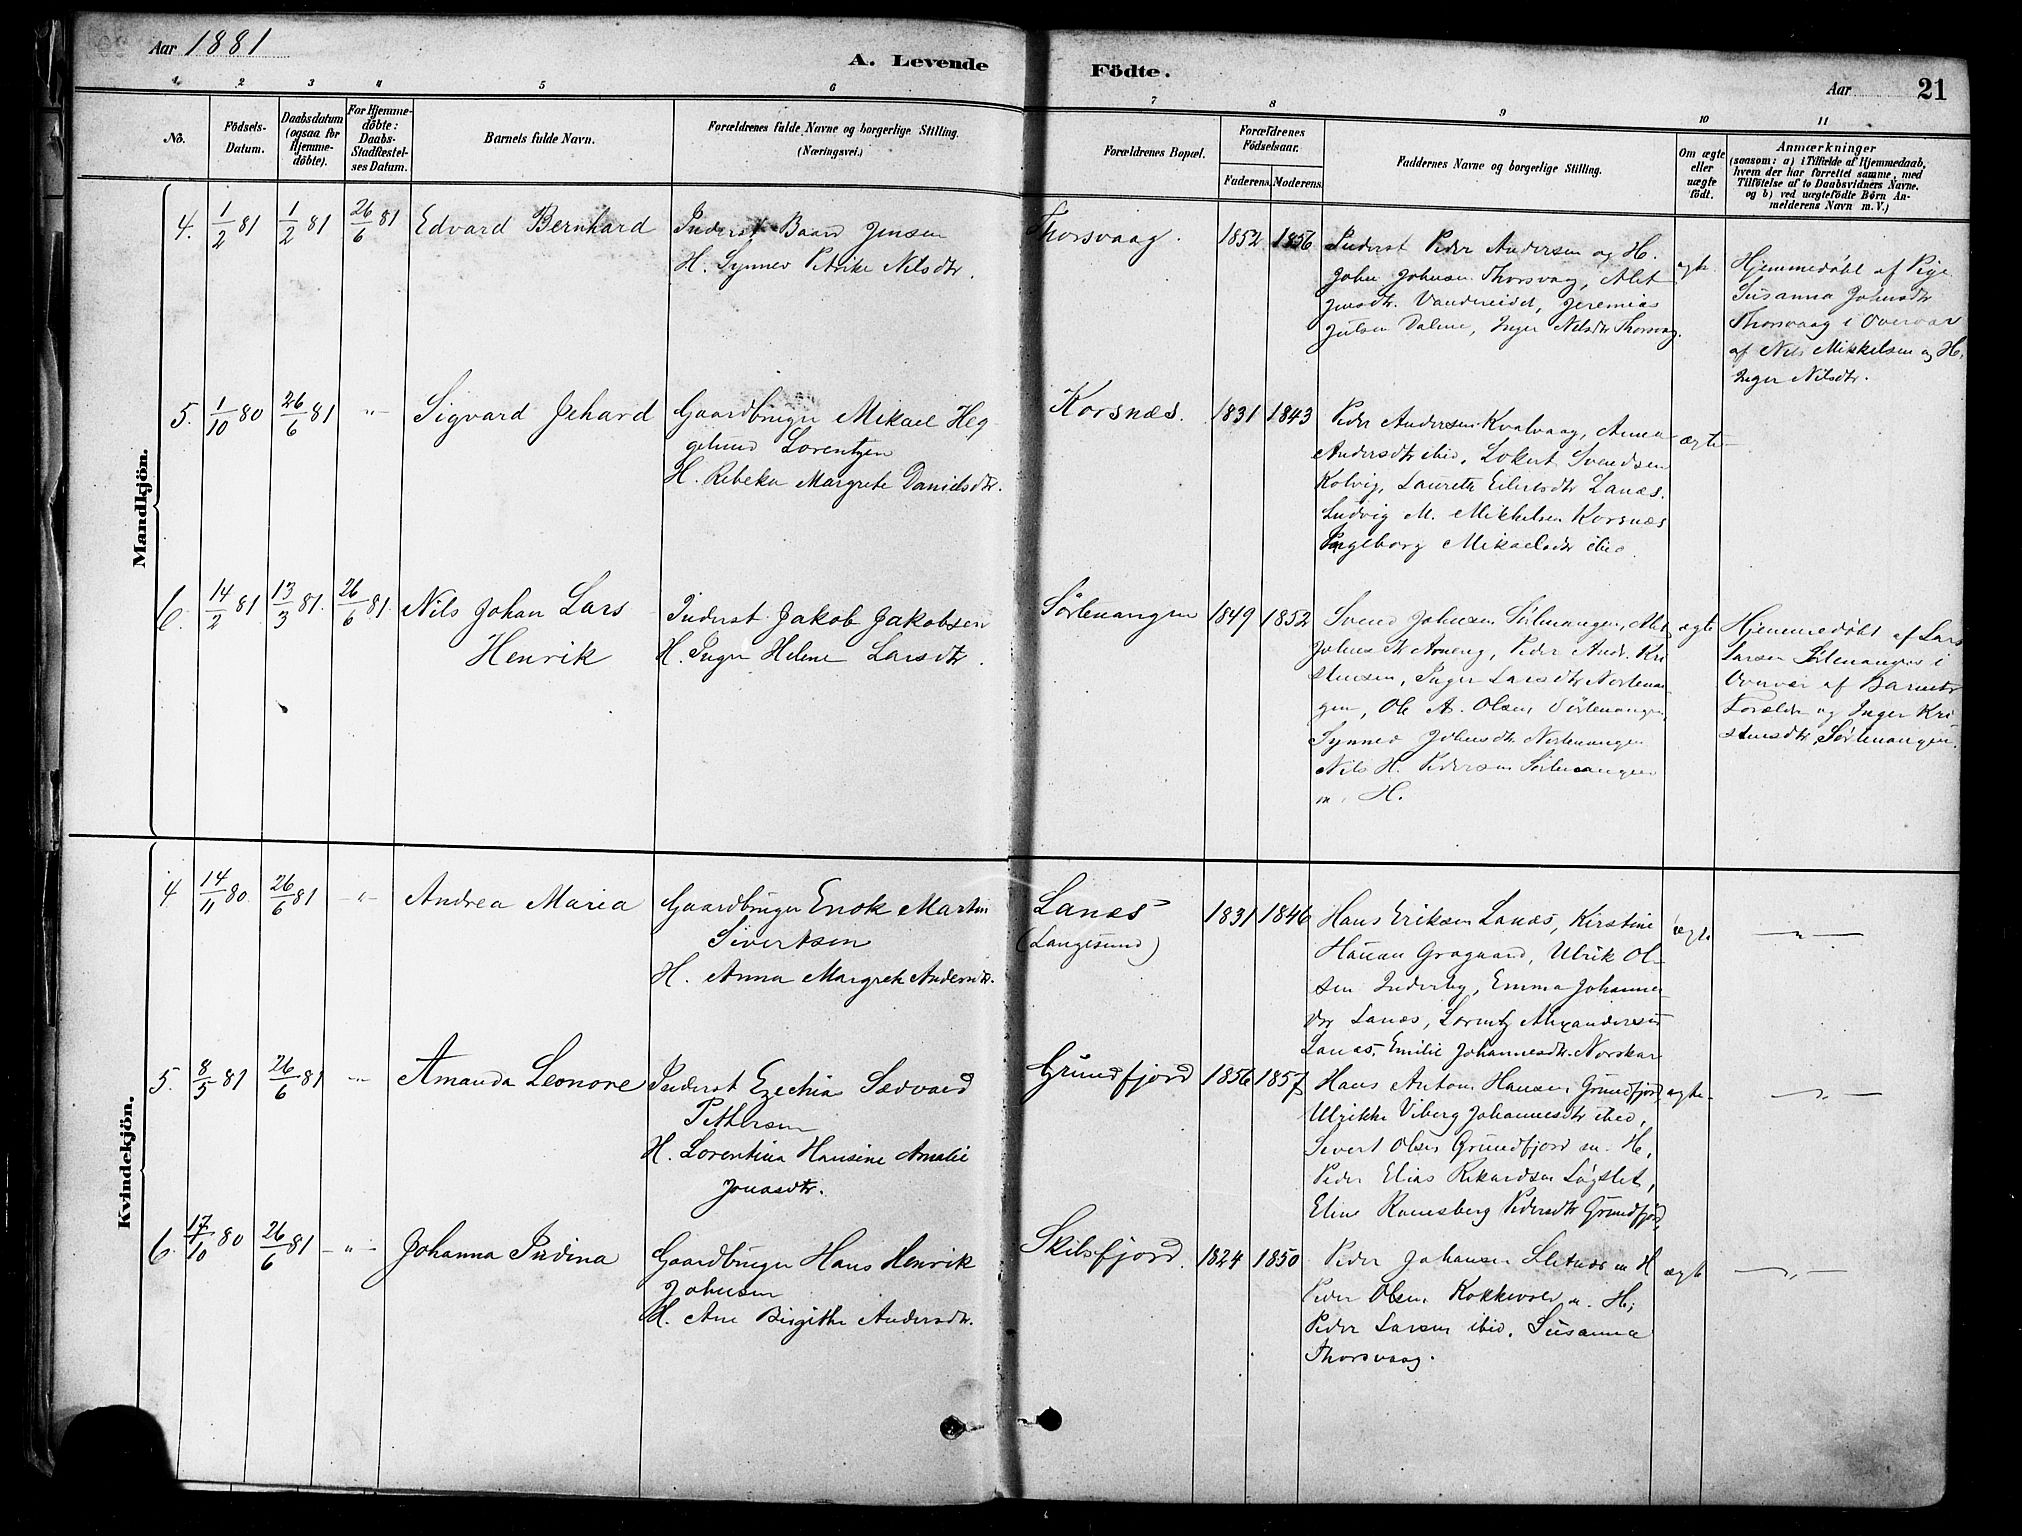 Aar 1881
A. Levende Födte.
Aar 21
1 2 3 4 5 6 7 8 9 10 11
Nô.
Födsels-
Datum.
Daabsdatum
(ogsaa for
Hjemme-
döbte).
For Hjemme-
döbte:
Daabs-
Stadfæstel-
ses Datum.
Barnets fulde Navn.
Forældrenes fulde Navne og borgerlige Stilling.
(Næringsvei.)
Forældrenes Bopæl.
Forældrenes
Födselsaar.
Faderens. Moderens.
Faddernes Navne og borgerlige Stilling.
Om ægte
eller
uægte
födt.
Anmærkninger
(saasom: a) i Tilfælde af Hjemmedaab,
hvem der har forrettet samme, med
Tilföielse af to Daabsvidners Navne.
og b) ved uægtefödte Börn An-
melderens Navn m. V.)
Mandkjön.
4. 1/2 81 1/2 81 26/6 81 Edvard Bernhard
Inderst Baard Jensen
H. Synnev Petrike Nilsdtr.
Thorsvaag. 1852 1856
Inderst Peder Andersen og H.
John Johnsen Thorsvaag, Alet
Jensdtr. Vandereidet, Jeremias
Julsen Dalene, Inger Nilsdtr Thorsvag.
ægte
Hjemmedøbt af Pige
Susanna Johnsdtr
Thorsvaag i Overvær
af Nils Mikkelsen og H.
Inger Nilsdtr.
5. 1/10 80 26/6 81 -"- Sigvard Jehard
Gaardbruger Mikael Heg-
gelund Lorentzen
H. Rebeka Margrete Danielsdtr.
Korsnæs. 1831 1843
Peder Andersen Kvalvaag, Anna
Andersdtr ibid, Lokert Svendsen
Kolvig, Laurette Eilertsdtr Lanæs.
Ludvig M. Mikkelsen Korsnæs
Ingeborg Mikaelsdtr ibid.
ægte
6. 14/2 81 13/3 81. 26/6 81. Nils Johan Lars
Henrik
Inderst Jakob Jakobsen
H. Inger Helene Larsdtr.
Sørlenangen 1849 1852
Svend Johnsen Sørlenangen, Alet
Johnsdtr Arneng, Peder Andr. Kri-
stensen, Inger Larsdtr Nortenan-
gen, Ole A. Olsen Sørlenangen,
Synnev Johnsdtr Nortenangen
Nils H. Pedersen Sørlenangen
m. H.
ægte
Hjemmedøbt af Lars
Larsen Sørlenangen i
Overvær af Barnets
Forældre og Inger Kri-
stensdtr, Sørlenangen.
Kvindekjön.
4 14/11 80 26/6 81 -"- Andrea Maria
Gaardbruger Enok Martin
Sivertsen
H. Anna Margrete Andersdtr.
Lanæs
(Langesund)
1831 1846
Hans Eriksen Lanæs, Kirstine
Hansen Graagaard, Ulrik Ol-
sen Inderby, Emma Johannes-
dtr Lanæs, Lorentz Alexandersen
Lanæs, Emilie Johannesdtr. Norskar
ægte -"-
5. 8/5 81 26/6 81 -"- Amanda Leonore
Inderst Ezechia Sedvard
Pettersen
H. Lorentina Hansine Amalie
Jonasdtr.
Grundfjord 1856 1857
Hans Anton Hansen Grundfjord,
Ulrikke Viberg Johannesdtr ibid,
Sivert Olsen Grundfjord m. H,
Peder Elias Rikardsen Løgslet,
Eline Ramsberg Pedersdtr Grundfjord,
ægte -"-
6. 17/10 80 26/6 81 -"- Johanna Indina
Gaardbruger Hans Henrik
Johnsen
H. Ane Birgithe Andersdtr.
Skilsfjord. 1824 1850
Peder Johansen Sletnæs m H
Peder Olsen Kokkevold m. H;
Peder Larsen ibid, Susanna
Thorsvaag.
ægte -"-